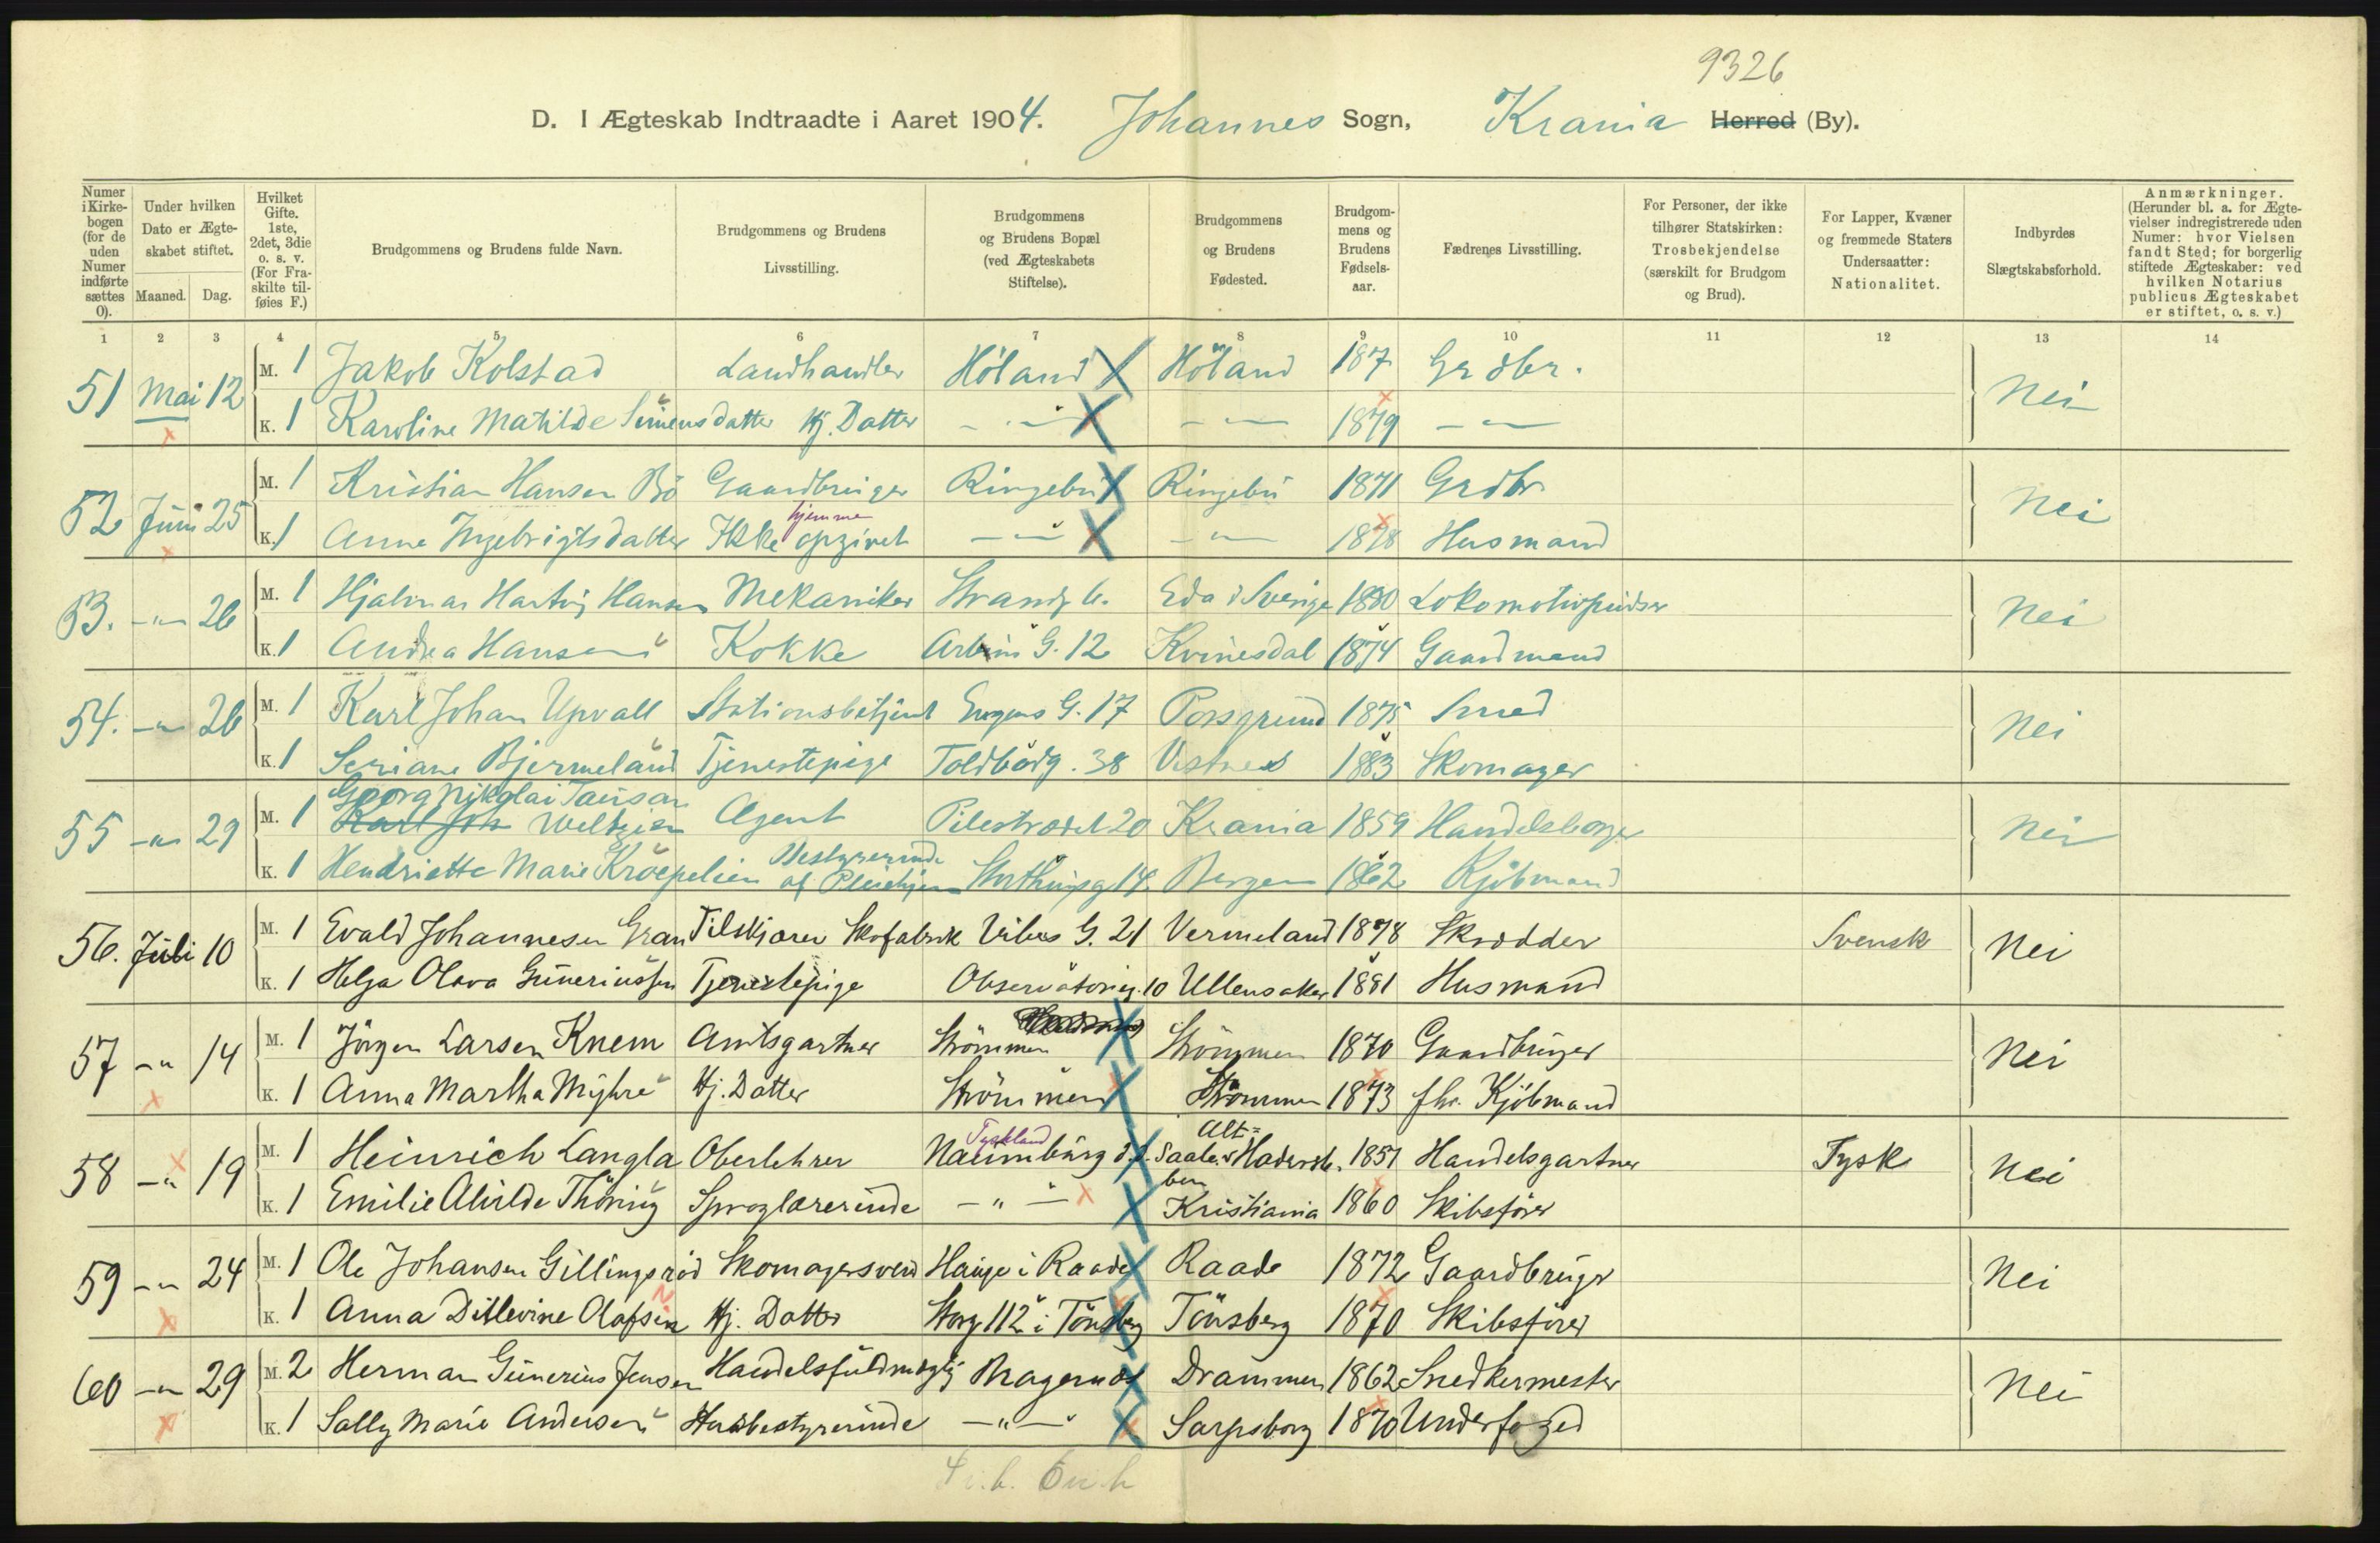 9326
D. I Ægteskab Indtraadte i Aaret 1904. Johannes Sogn, Krania Herred (By).
Numer i Kirkebogen (for de uden Numer indførte sættes 0).
Under hvilken Dato er Ægteskabet stiftet.
Maaned. Dag.
Hvilket Gifte. 1ste, 2det, 3die o. s. v. (For Fraskilte tilføies F.)
Brudgommens og Brudens fulde Navn.
Brudgommens og Brudens Livsstilling.
Brudgommens og Brudens Bopæl (ved Ægteskabets Stiftelse).
Brudgommens og Brudens Fødested.
Brudgommens og Brudens Fødselsaar.
Fædrenes Livsstilling.
For Personer, der ikke tilhører Statskirken: Trosbekjendelse (særskilt for Brudgom og Brud).
For Lapper, Kvæner og fremmede Staters Undersaatter: Nationalitet.
Indbyrdes Slægtskabsforhold.
Anmærkninger. (Herunder bl. a. for Ægtevielser indregistrerede uden Numer: hvor Vielsen fandt Sted; for borgerlig stiftede Ægteskaber: ved hvilken Notarius publicus Ægteskabet er stiftet, o. s. v.)
1 2 3 4 5 6 7 8 9 10 11 12 13 14
51 Mai 12 M. 1 Jakob Kolstad Landhandler Höland Höland 187 Grdbr. Nei
K. 1 Karoline Matilde Simensdatter Hj. Datter - " - - " - 1879 - " -
52 Juni 25 M. 1 Kristian Hansen Bö Gaardbruger Ringebu Ringebu 1871 Grdbr Nei
hjemme
K. 1 Anne Ingebrigtsdatter Ikke opgivet - " - - " - 1878 Husmand
53. - " - 26 M. 1 Hjalmar Hartvig Hansen Mekaniker Strandg 6. Eda i Sverige 1880 Lokomotivpudser Nei
K. 1 Andrea Hansen Kokke Arbins G. 12 Kvinesdal 1874 Gaardmand
54. - " - 26 M. 1 Karl Johan Upvall Stationsbetjent G. 17 Porsgrund 1875 Smed Nei
K. 1 Seriane Bjermeland Tjenestepige Toldbodg. 38 Vestnes 1883 Skomager
Georg Nikolai Tausan
55 - " - 29 M. 1 Karl Joh Weltzien Agent Pilestrædet 20 Krania 1859 Handelsborger Nei
Bestyrerinde
K. 1 Hendriette Marie Kröepelien af Pleiehjem Storthingsg 14. Bergen 1862 Kjöbmand
56. Juli 10 M. 1 Evald Johannesen Gran Tilskjærer Skofabrik Vibes G. 21 Vermeland 1878 Skrædder Svensk Nei
K. 1 Helga Olava Gunerius\fsen Tjenestepige Observatorieg. 10 Ullensaker 1881 Husmand
57 - " 14 M. 1 Jörgen Larsen Knem Amtsgartner Strömmen Strömmen 1870 Gaardbruger Nei
K. 1 Anna Martha Myhre Hj. Datter Strömmen Strömmen 1873 fhv. Kjöbmand
Tyskland Alt=
58 - " 19 M. 1 Heinrich Langla Oberlehrer Naumburg a.d. Saale. v Hadersle, 1857 Handelsgartner Tysk Nei
ben
K. 1 Emilie Alvilde Thöring Sproglærerinde - " - Kristiania 1860 Skibsförer
59 - " - 24 M. 1 Ole Johansen Gillingsröd Skomagersvend Hauge i Raade Raade 1872 Gaardbruger Nei
K. 1 Anna Ditlevine Olafsen Hj. Datter Storg 112 i Tönsberg Tönsberg 1870 Skibsförer
60 - " - 29 M. 2 Herman Gunerius Jensen Handelsfuldmægtig Bragernæs Drammen 1862 Snedkermester Nei
K. 1 Sally Marie Andersen Husbestyrerinde - " - Sarpsborg 1870 Underfoged